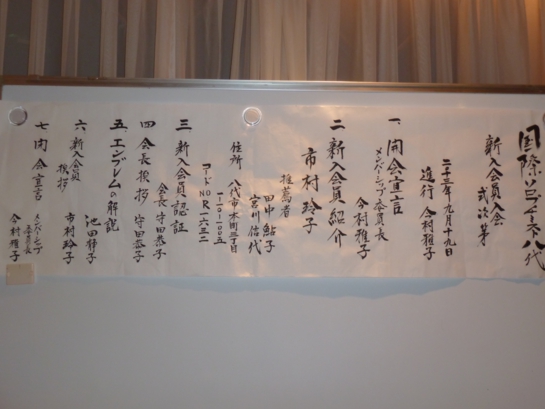 国際ソロプチミスト八代
新入会員入会式次第
二十三年九月十九日
進行 今村雅子
一 開会宣言
メンバーシップ委員長
今村雅子
二 新入会員紹介
市村玲子
推薦者
田中鮎子
宮川信代
住所 八代市本町三丁目
コードNO R一六三二
三 新入会員認証
会長 守田恭子
四 会長挨拶 守田恭子
五 エンブレムの解説
池田静子
六 新入会員挨拶
市村玲子
七 閉会宣言
メンバーシップ委員長
今村雅子